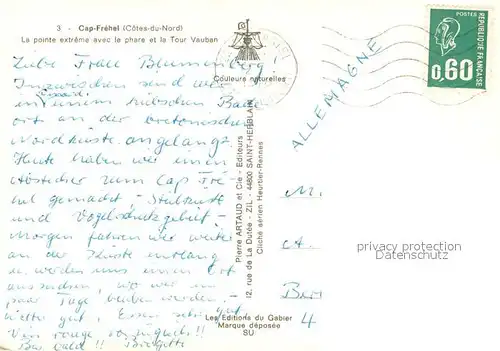 3 - Cap-Fréhel (Côtes-du-Nord)
La pointe extrême avec le phare et la Tour Vauban
Couleurs naturelles
POSTES
RÉPUBLIQUE FRANÇAISE
0,60
ALLEMAGNE
Liebe Frau Blumenberg!
Inzwischen sind wir
in einem hübschen Bade
ort an der bretonischen
Nordküste angelangt.
Heute haben wir einen
Abstecher zum Cap Fré-
hel gemacht, - Steilküste
und Vogelschutzgebiet -
Morgen fahren wir weiter
an der Küste entlang
u. werden uns einen Ort
aussuchen, wo wir ein
paar Tage bleiben werden. -
Wetter gut, Essen sehr gut
Vin rouge vorzüglich!!
Bis bald!! Brigitte
Pierre ARTAUD et Cie - Editeurs
12, rue de La Dutée - ZIL - 44800 SAINT-HERBLAIN
Cliché aérien Heurtier-Rennes
Les Editions du Gabier
Marque déposée
SU
M.
4
privacy protection
Datenschutz